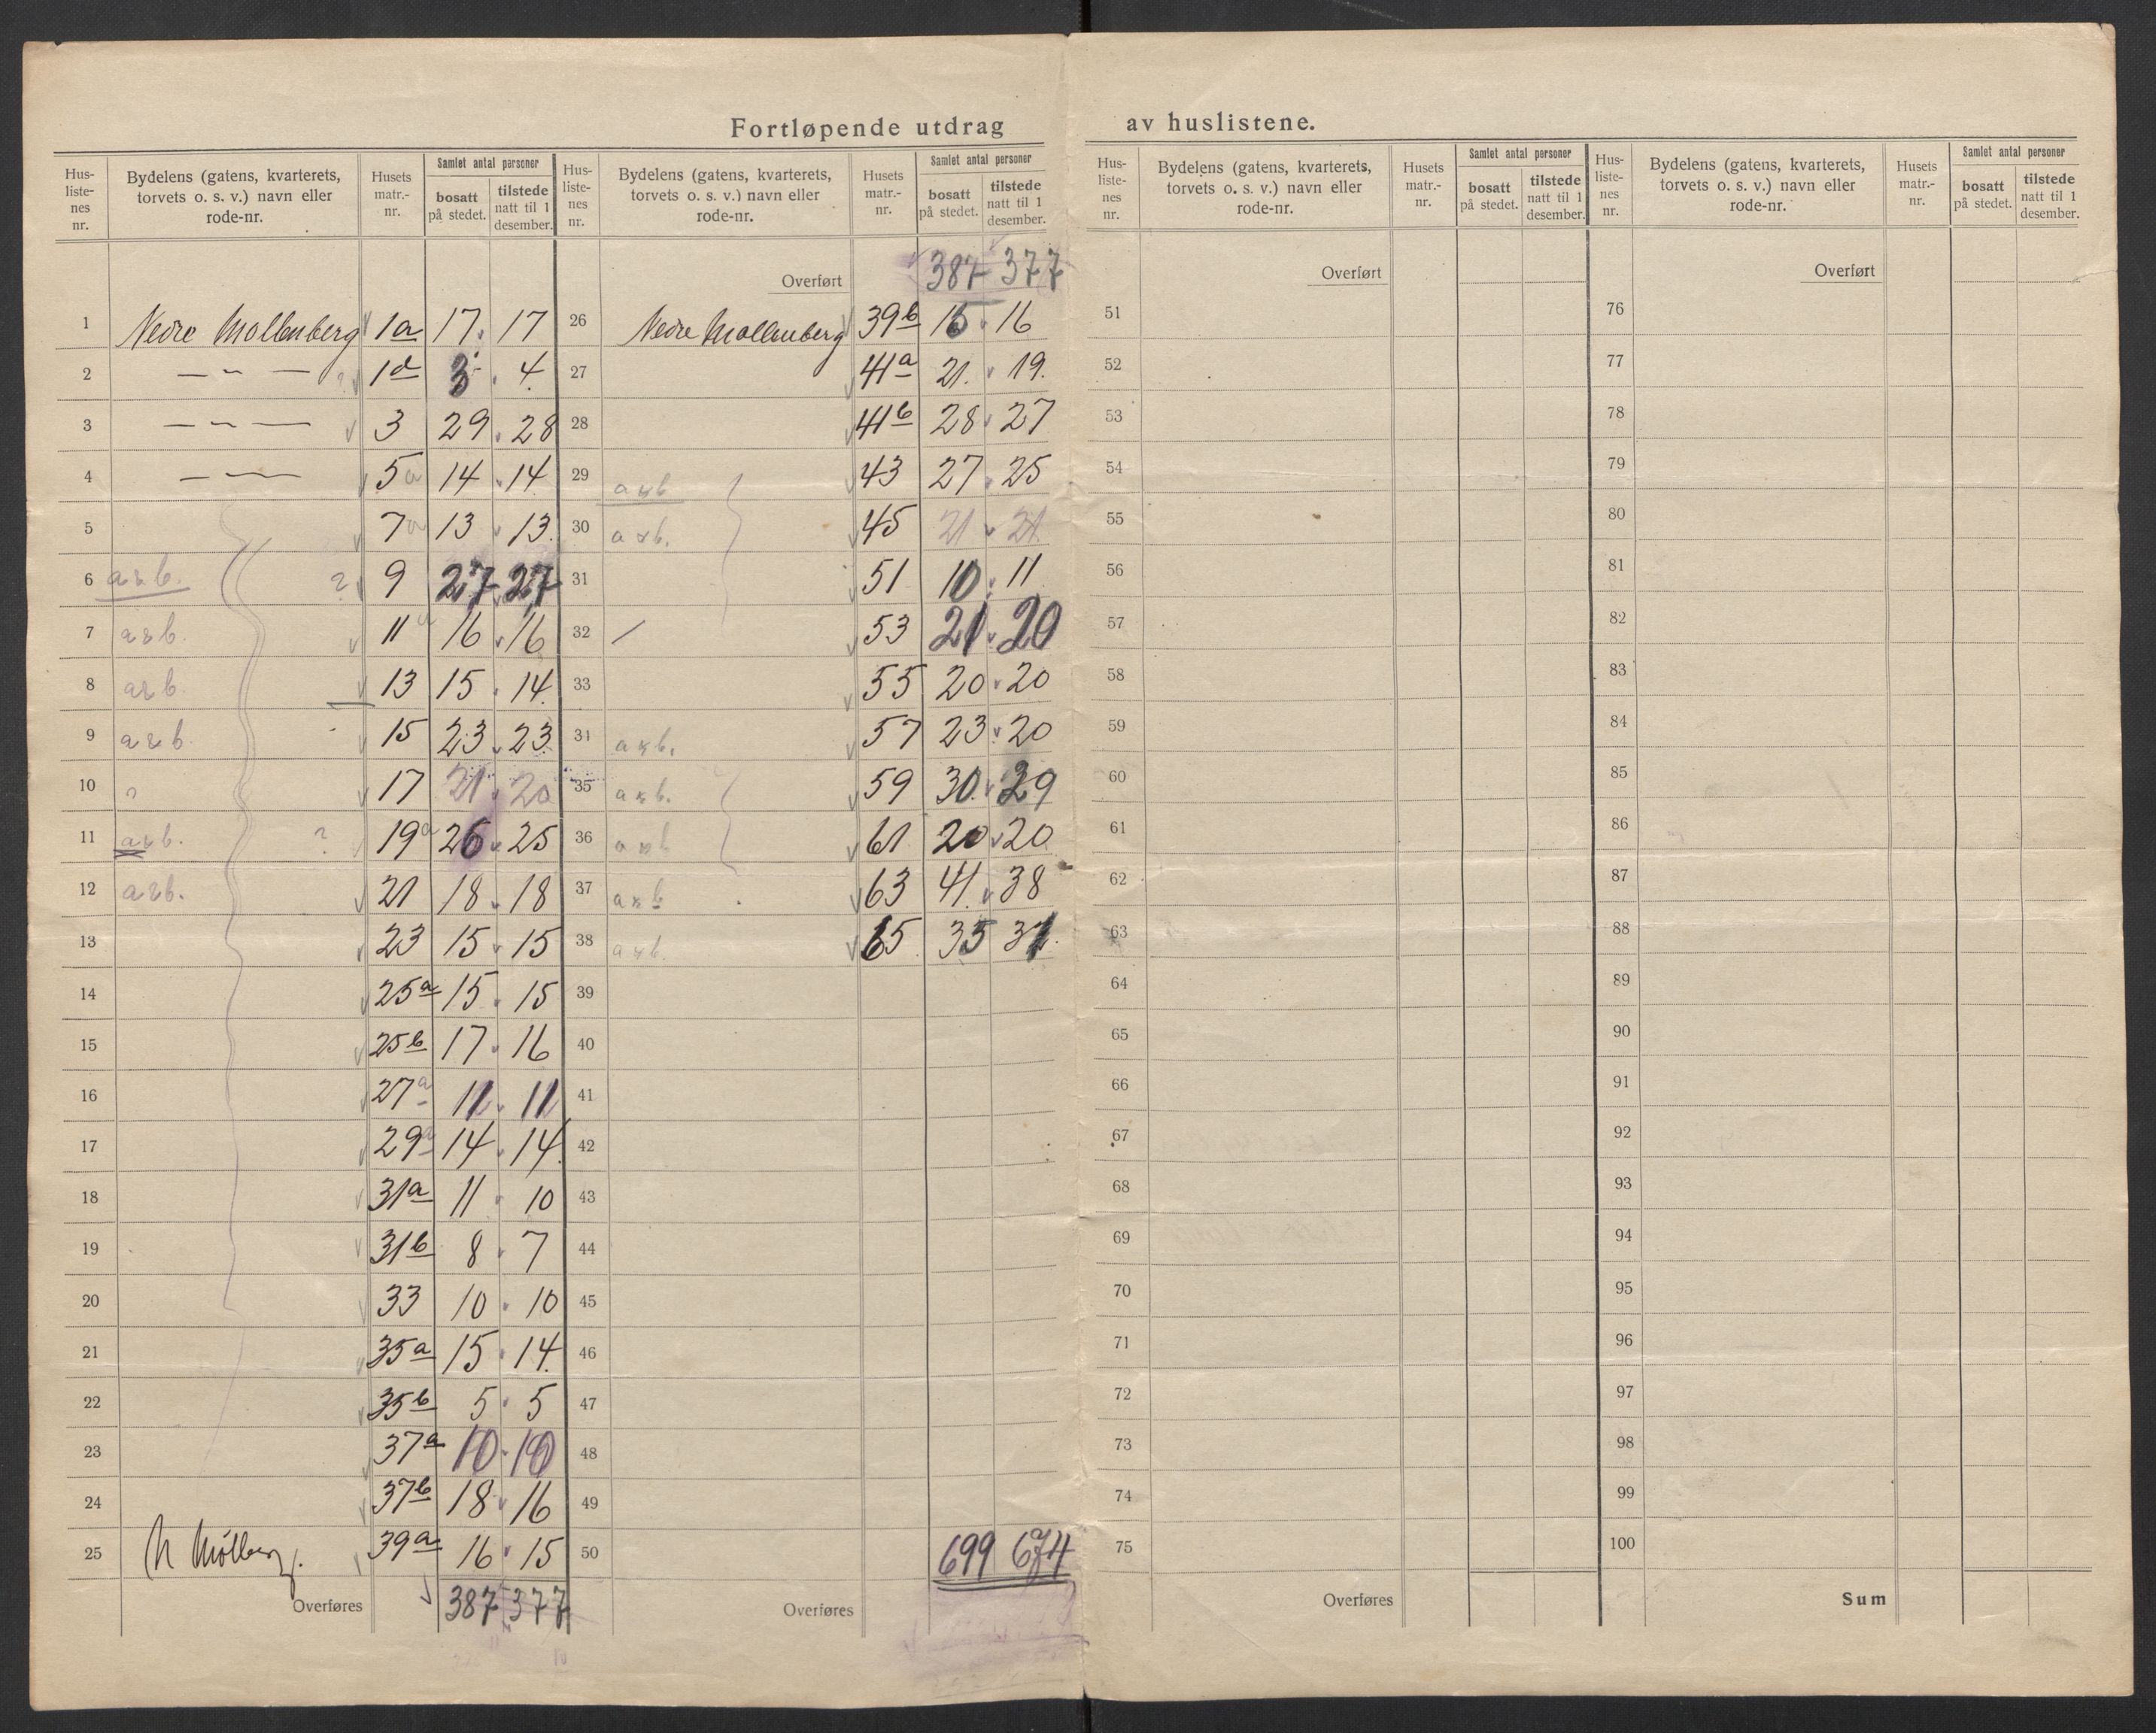 Fortløpende utdrag av huslistene.
Hus-liste-nes nr. | Bydelens (gatens, kvarterets, torvets o. s. v.) navn eller rode-nr. | Husets matr.-nr. | Samlet antal personer | bosatt på stedet. | tilstede natt til 1 desember.
1 Nedre Mollenberg 1a 17 17
2 — " — 1d 3 4
3 — " — 3 29 28
4 — " — 5a 14 14
5 7a 13 13
6 arb. ? 9 27 27
7 arb. 11a 16 16
8 arb. 13 15 14
9 arb. 15 23 23
10 17 21 20
11 arb. ? 19a 26 25
12 arb. 21 18 18
13 23 15 15
14 25a 15 15
15 25b 17 16
16 27a 11 11
17 29a 14 14
18 31a 11 10
19 31b 8 7
20 33 10 10
21 35a 15 14
22 35b 5 5
23 37a 10 10
24 37b 18 16
25 N Møllenbg. 39a 16 15
Overføres 387 377
Hus-liste-nes nr. | Bydelens (gatens, kvarterets, torvets o. s. v.) navn eller rode-nr. | Husets matr.-nr. | Samlet antal personer | bosatt på stedet. | tilstede natt til 1 desember.
Overført 387 377
26 Nedre Mollenberg 39b 16 16
27 41a 21 19
28 41b 28 27
29 arb 43 27 25
30 arb. 45 21 21
31 51 10 11
32 / 53 21 20
33 55 20 20
31 arb. 57 23 20
35 arb. 59 30 29
36 arb 61 20 20
37 arb 63 41 38
38 arb. 65 35 31
39
40
41
42
43
44
45
46
47
48
49
50 699 674
Overføres
Hus-liste-nes nr. | Bydelens (gatens, kvarterets, torvets o. s. v.) navn eller rode-nr. | Husets matr.-nr. | Samlet antal personer | bosatt på stedet. | tilstede natt til 1 desember.
Overført
51
52
53
54
55
56
57
58
59
60
61
62
63
64
65
66
67
68
69
70
71
72
73
74
75
Overføres
Hus-liste-nes nr. | Bydelens (gatens, kvarterets, torvets o. s. v.) navn eller rode-nr. | Husets matr.-nr. | Samlet antal personer | bosatt på stedet. | tilstede natt til 1 desember.
Overført
76
77
78
79
80
81
82
83
84
85
86
87
88
89
90
91
92
93
94
95
96
97
98
99
100
Sum